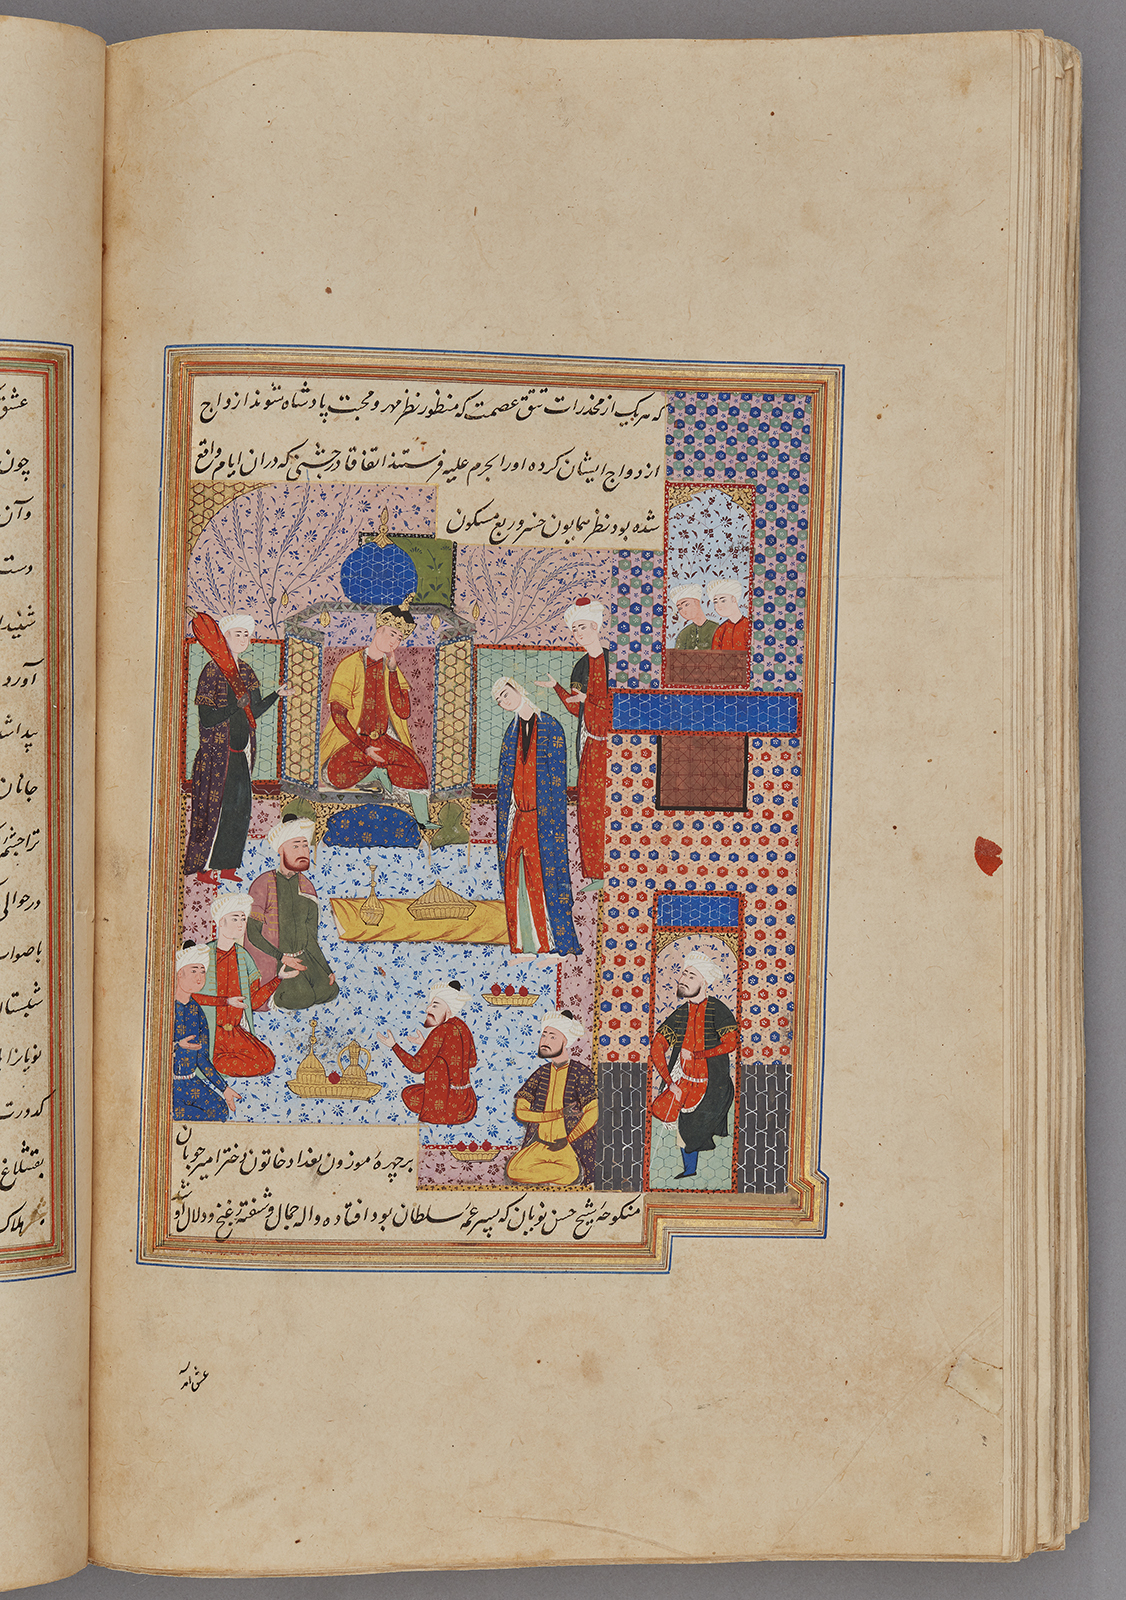 که هر یک از مخدرات تتق عصمت که منظور نظر مهر و محبت پادشاه شوند از ازواج
ازدواج ایشان کرده او را بحرم علیه فرستند اتفاقا در جشنی که در ان ایام واقع
شده بود نظر همایون خسرو ربع مسکون
بر چهره موزون بغداد خاتون دختر امیر چوپان
منکوحه شیخ حسن نویان که پسر عمه سلطان بود افتاده واله جمال و شیفته غنج و دلال او شد
عشق
چون
وآن
آورد
جانان
در حوالی
باصواب
کدورت
هلاک